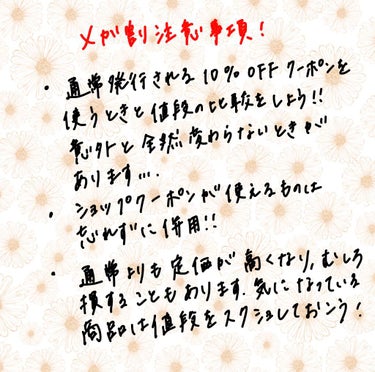 メガ割注意事項！
・通常発行される10%OFFクーポンを
使うときと値段の比較をしよう!!
意外と全然変わらないときが
あります….
・ショップクーポンが使えるものは
忘れずに併用!!
・通常よりも定価が高くなり,むしろ
損することもあります.気になっている
商品は値段をスクショしておこう！